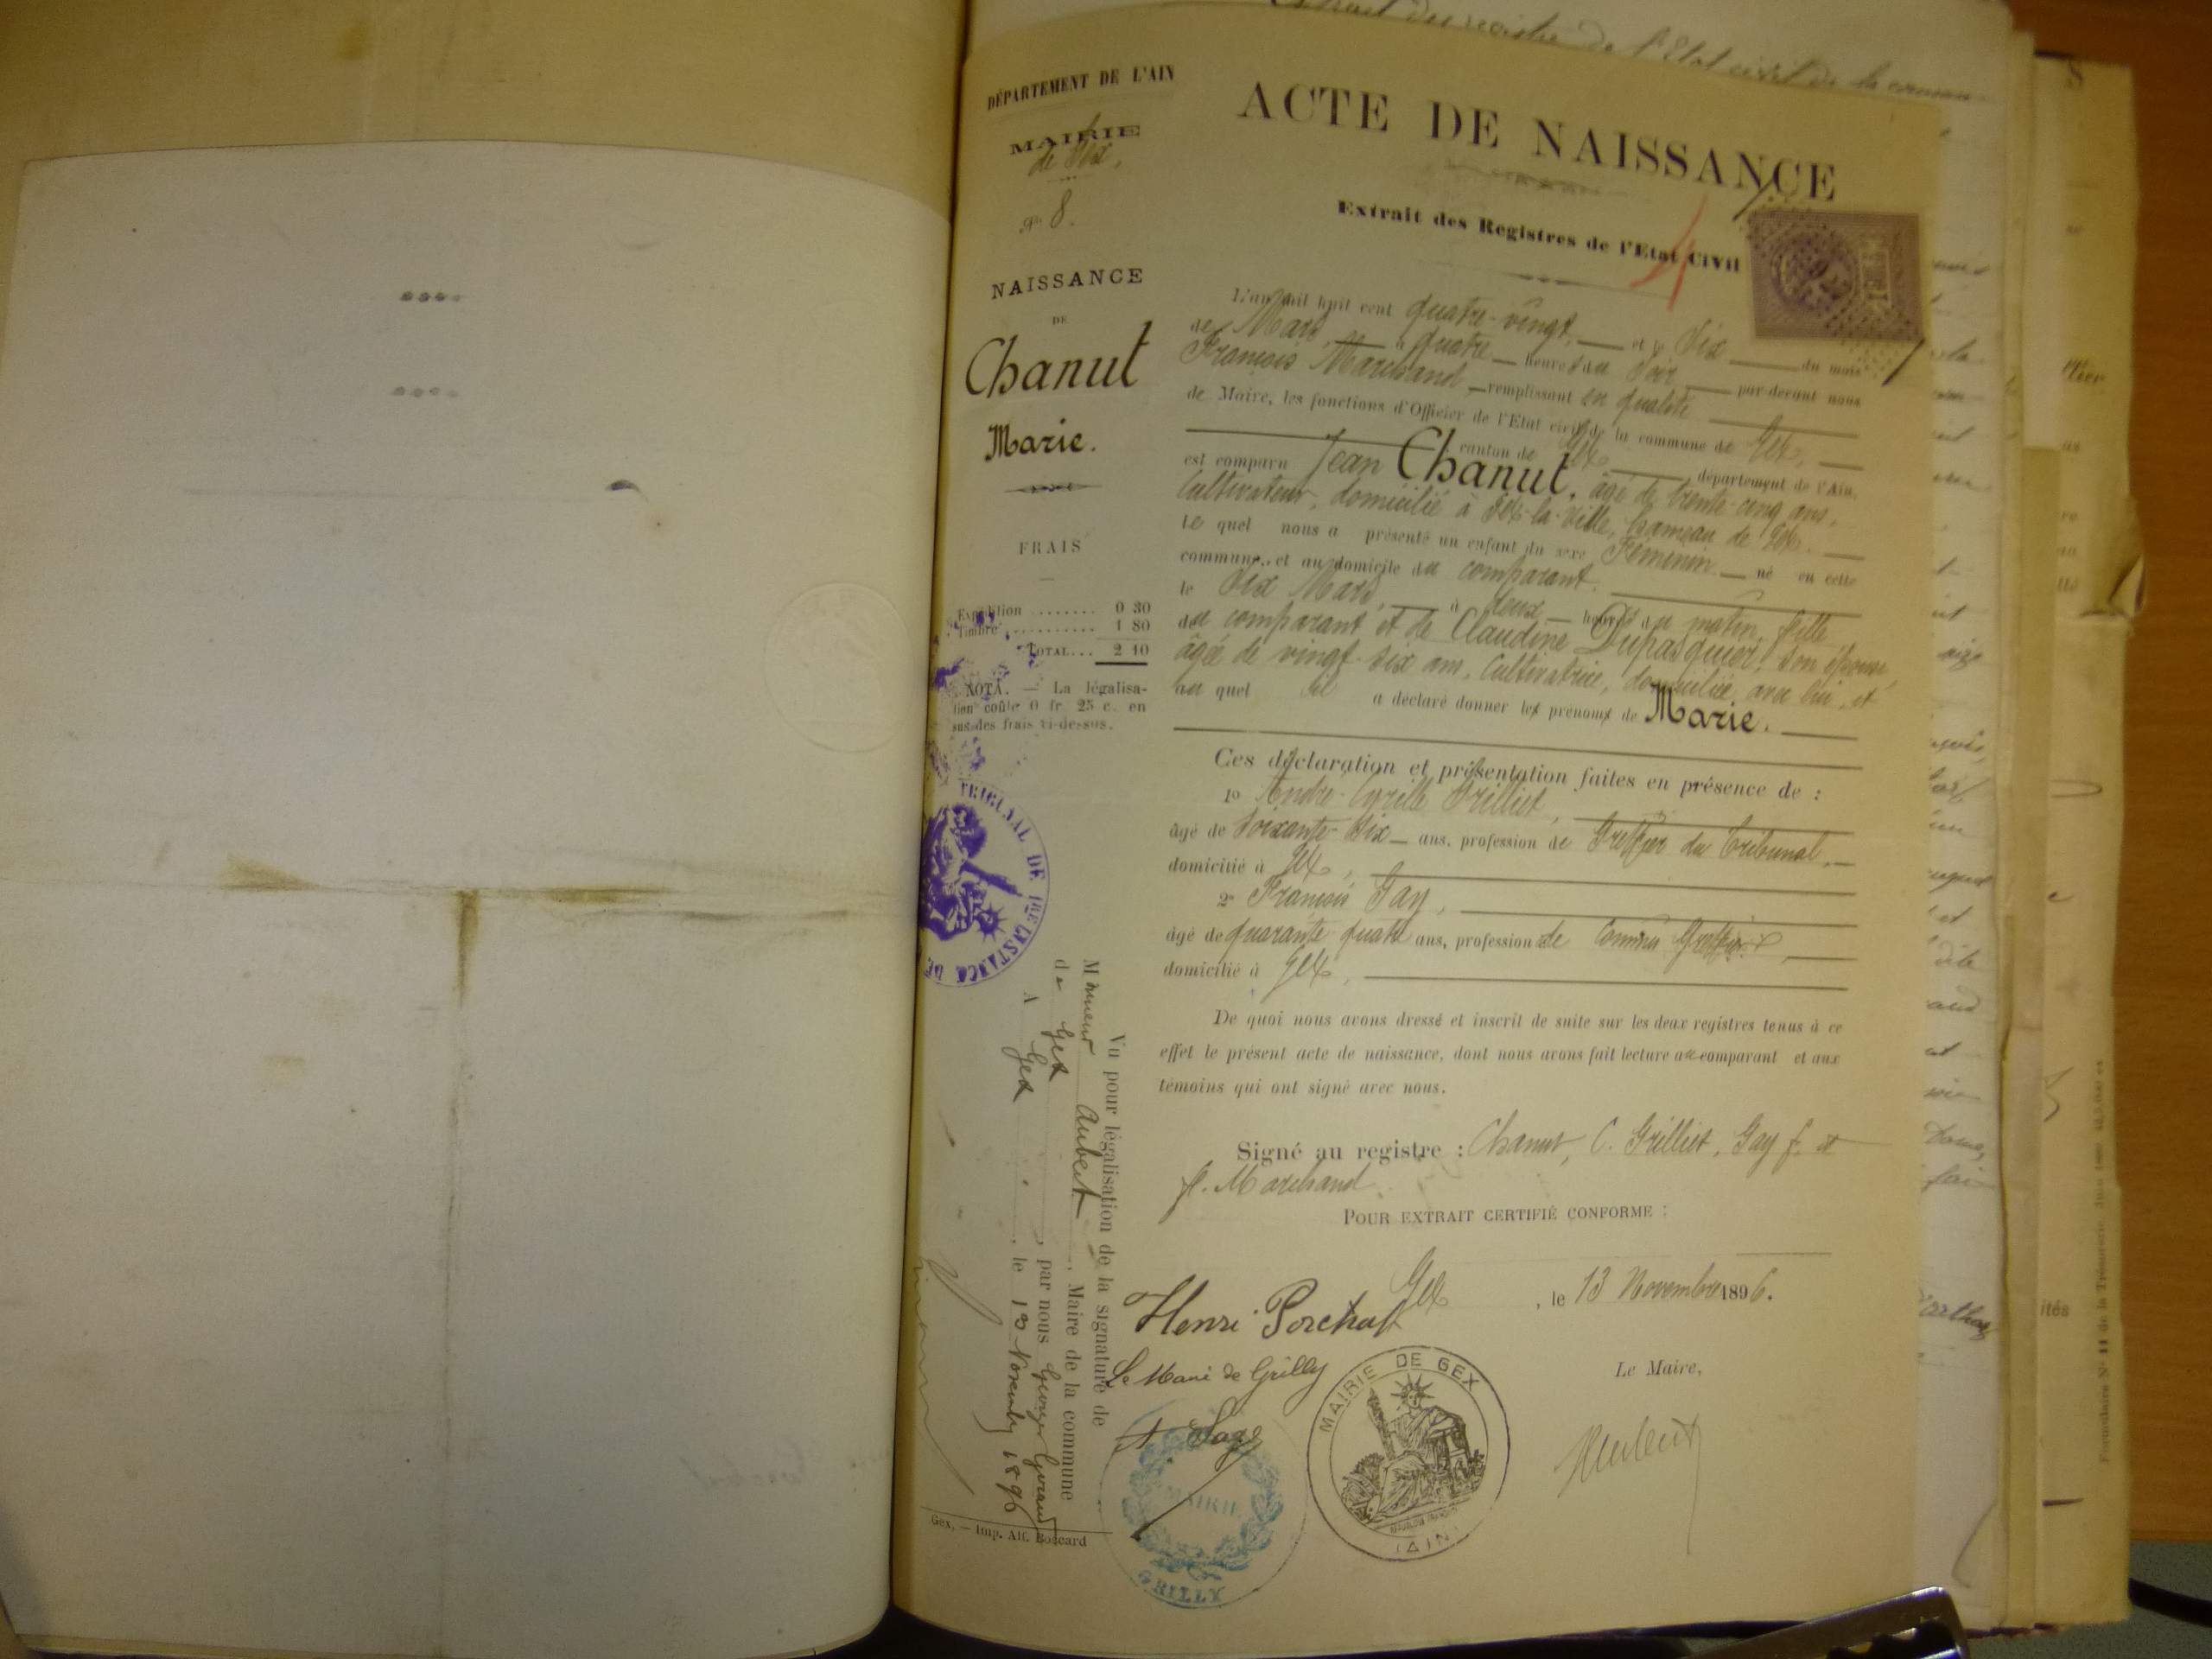 DÉPARTEMENT DE L'AIN
MAIRIE
de Gex.
No 8.
NAISSANCE
DE
Chanut
Marie.
FRAIS
Expédition ........ 0 30
Timbre ........... 1 80
TOTAL... 2 10
NOTA. — La légalisa-
tion coûte 0 fr. 25 c. en
sus des frais ci-dessus.
TRIBUNAL DE 1RE INSTANCE DE
Vu pour légalisation de la signature de
Monsieur Aubert, Maire de la commune
de Gex, par nous
A Gex, le 13 Novembre 1896
Gex, — Imp. Alf. Boccard
Extrait du registre de l'Etat civil de la commune
ACTE DE NAISSANCE
Extrait des Registres de l'Etat Civil
L'an mil huit cent quatre-vingt, et le dix du mois
de Mars, à quatre heures du soir par-devant nous
François Marchand remplissant en qualité
de Maire, les fonctions d'Officier de l'Etat civil de la commune de Gex,
canton de Gex, département de l'Ain,
est comparu Jean Chanut, âgé de trente-cinq ans,
Cultivateur, domicilié à Gex-la-Ville, hameau de Gex.
Le quel nous a présenté un enfant du sexe Féminin né en cette
commune, et au domicile du comparant.
le dix Mars, à deux heures du matin, fille
du comparant et de Claudine Dupasquier, son épouse,
âgée de vingt-six ans, Cultivatrice, domiciliée avec lui, et
au quel il a déclaré donner les prénoms de Marie.
Ces déclaration et présentation faites en présence de :
1o André-Cyrille Grilliet,
âgé de soixante-dix ans, profession de Greffier du Tribunal,
domicilié à Gex,
2o François Gay,
âgé de quarante-quatre ans, profession de Commis Greffier,
domicilié à Gex,
De quoi nous avons dressé et inscrit de suite sur les deux registres tenus à ce
effet le présent acte de naissance, dont nous avons fait lecture au comparant et aux
témoins qui ont signé avec nous.
Signé au registre : Chanut, C. Grilliet, Gay f. et
f. Marchand
POUR EXTRAIT CERTIFIÉ CONFORME :
Gex, le 13 Novembre 1896.
Henri Porchat
Le Maire de Grilly
Le Maire,
MAIRIE DE GEX
(AIN)
MAIRIE
GRILLY